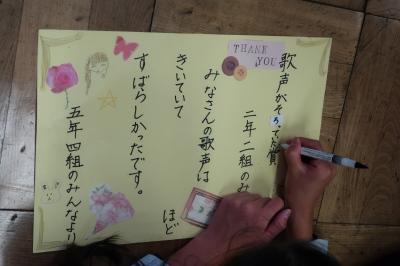 THANK YOU
歌声がそろってた賞
二年二組のみ
みなさんの歌声は
きいていて ほど
すばらしかったです。
五年四組のみんなより